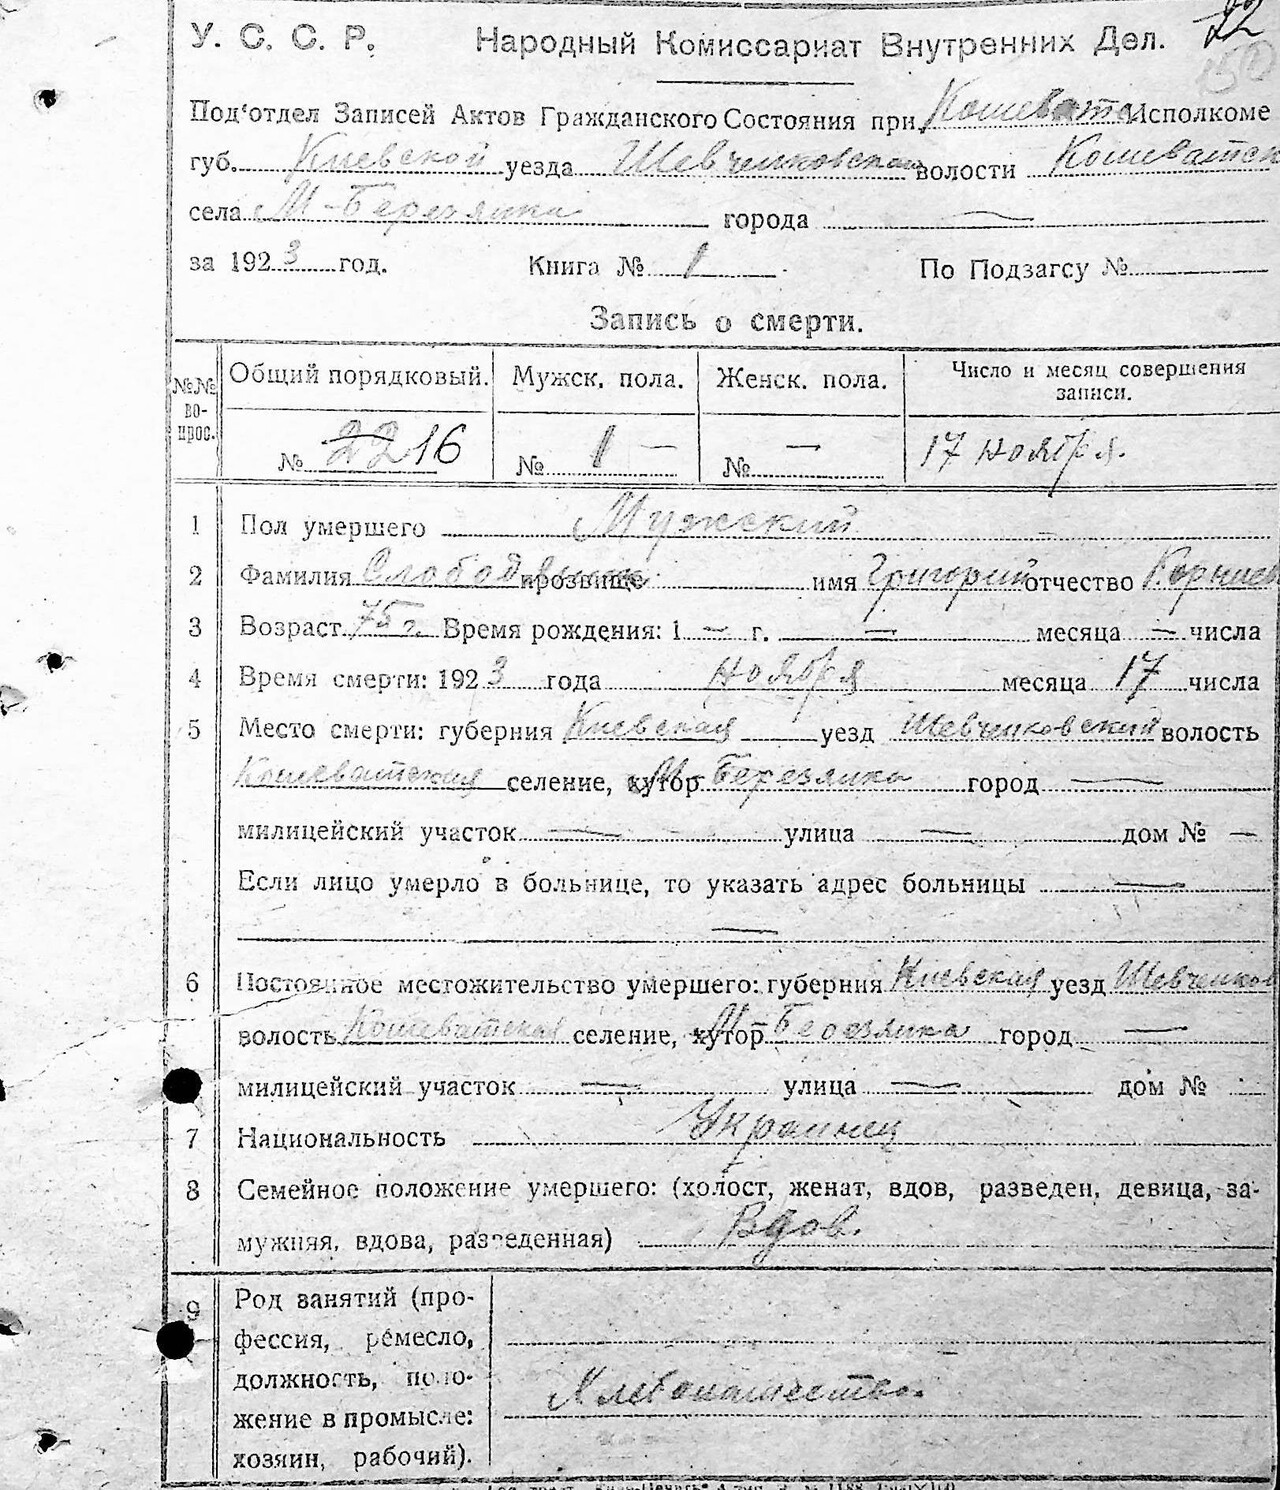 22
У. С. С. Р. Народный Комиссариат Внутренних Дел.
150
Под‘отдел Записей Актов Гражданского Состояния при Кошеватс Исполкоме
губ. Киевской уезда Шевченковской волости Кошеватск
села М-Березянка города —
за 1923 год. Книга № 1 По Подзагсу №
Запись о смерти.
№№ вопрос. Общий порядковый. Мужск. пола. Женск. пола. Число и месяц совершения записи.
№ 22 16 № 1 — № — 17 ноября.
1 Пол умершего Мужский
2 Фамилия Слободяник прозвище имя Григорий отчество Корниев
3 Возраст 75 г. Время рождения: 1 — г. — месяца — числа
4 Время смерти: 1923 года ноября месяца 17 числа
5 Место смерти: губерния Киевская уезд Шевченковский волость
Кошеватская селение, хутор М-Березянка город —
милицейский участок — улица — дом № —
Если лицо умерло в больнице, то указать адрес больницы —
—
6 Постоянное местожительство умершего: губерния Киевская уезд Шевченков
волость Кошеватская селение, хутор М-Березянка город —
милицейский участок — улица — дом №
7 Национальность Украинец
8 Семейное положение умершего: (холост, женат, вдов, разведен, девица, за-
мужняя, вдова, разведенная) Вдов.
9 Род занятий (про-
фессия, ремесло,
должность, поло-
жение в промысле: Хлебопашество.
хозяин, рабочий).